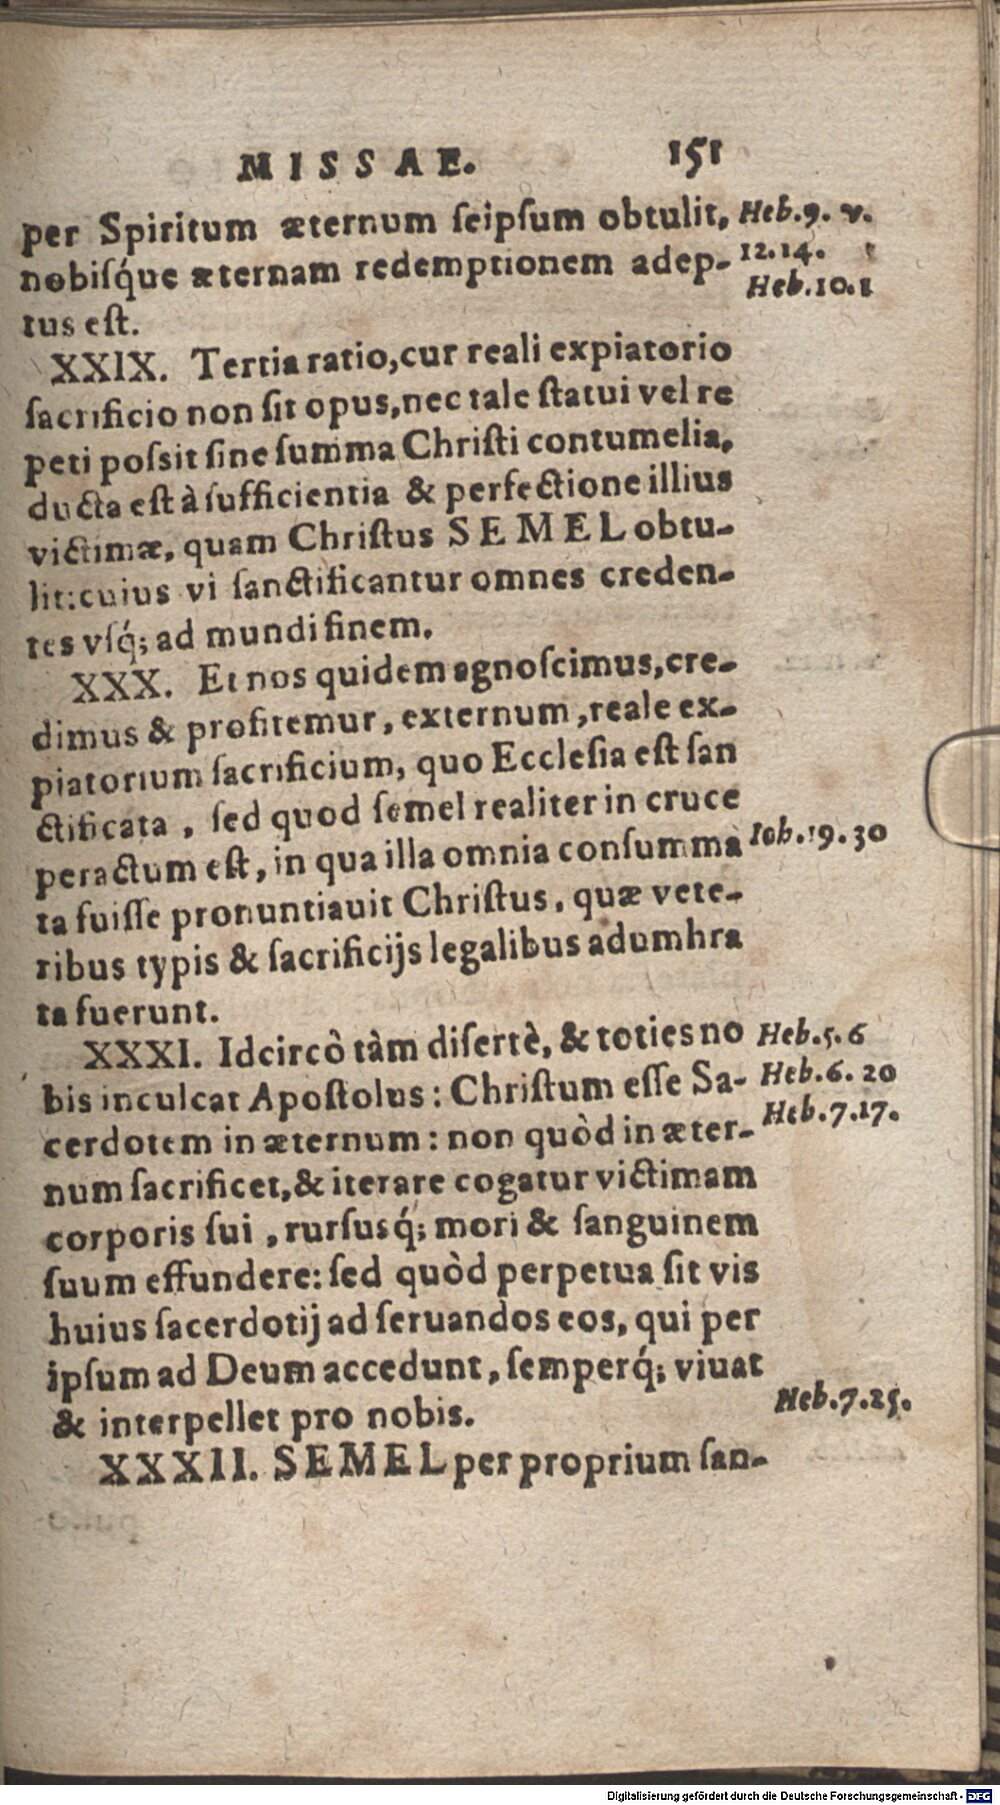 MISSAE. 151
per Spiritum æternum ſeipſum obtulit, Heb.9. v.
nobiſq́ue æternam redemptionem adep- 12.14.
tus eſt. Heb.10.1
XXIX. Tertia ratio, cur reali expiatorio
ſacrificio non ſit opus, nec tale ſtatui vel re
peti poſsit ſine ſumma Chriſti contumelia,
ducta eſt à ſufficientia & perfectione illius
victimæ, quam Chriſtus SEMEL obtu-
lit: cuius vi ſanctificantur omnes creden-
tes vſq́; ad mundi finem.
XXX. Et nos quidem agnoſcimus, cre-
dimus & profitemur, externum, reale ex-
piatorium ſacrificium, quo Eccleſia eſt ſan
ctificata, ſed quod ſemel realiter in cruce
peractum eſt, in qua illa omnia conſumma Ioh.19.30
ta fuiſſe pronuntiauit Chriſtus, quæ vete-
ribus typis & ſacrificijs legalibus adumhra
ta fuerunt.
XXXI. Idcircò tàm diſertè, & toties no Heb.5.6
bis inculcat Apoſtolus: Chriſtum eſſe Sa- Heb.6.20
cerdotem in æternum: non quòd in æter- Heb.7.17.
num ſacrificet, & iterare cogatur victimam
corporis ſui, rurſusq́; mori & ſanguinem
ſuum effundere: ſed quòd perpetua ſit vis
huius ſacerdotij ad ſeruandos eos, qui per
ipſum ad Deum accedunt, ſemperq́; viuat
& interpellet pro nobis. Heb.7.25.
XXXII. SEMEL per proprium ſan-
Digitalisierung gefördert durch die Deutsche Forschungsgemeinschaft - DFG